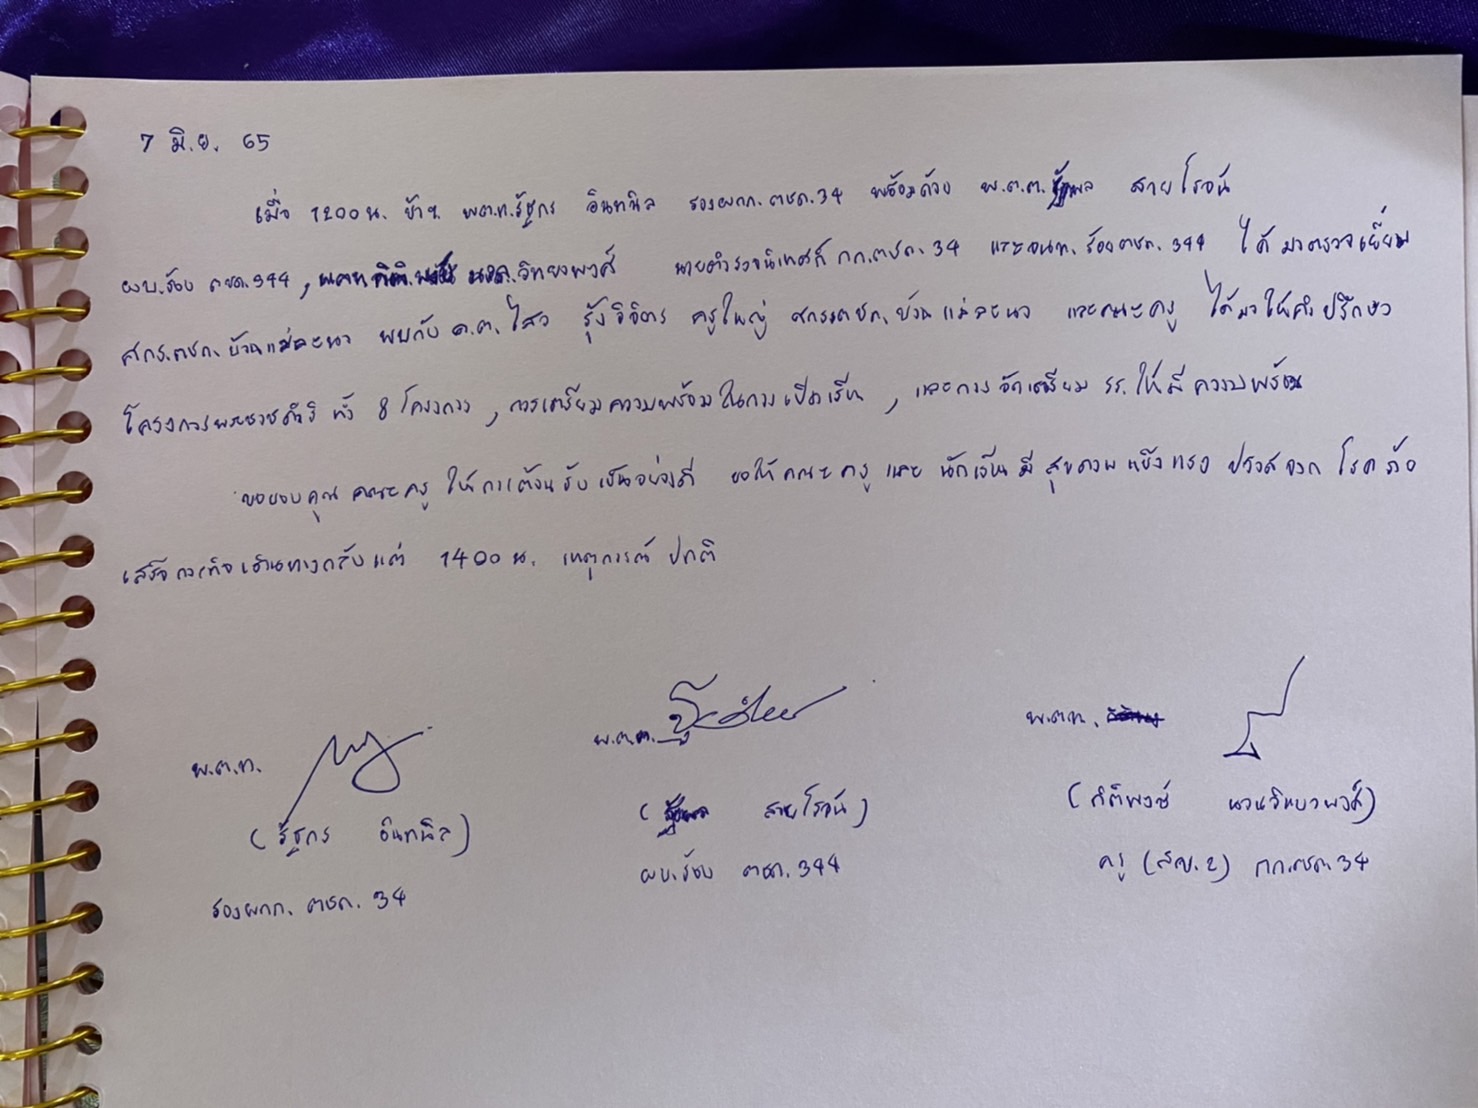 7 มิ.ย. 65
เมื่อ 1200 น. ข้าฯ พ.ต.ท.รัฐกร อินทนิล รองผกก.ตชด.34 พร้อมด้วย พ.ต.ต. สายโรจน์
ผบ.ร้อย ตชด.344, วิทยงพงศ์ นายตำรวจนิเทศก์ กก.ตชด.34 และจนท.ร้อยตชด.344 ได้มาตรวจเยี่ยม
ศกร.ตชด.บ้านแม่ละนา พบกับ ด.ต.ไสว รุ้งวิจิตร ครูใหญ่ ศกร.ตชด.บ้านแม่ละนา และคณะครู ได้มาให้คำปรึกษา
โครงการพระราชดำริ ทั้ง 8 โครงการ, การเตรียมความพร้อมในการเปิดเรียน, และการจัดเตรียม รร.ให้มีความพร้อม
ขอขอบคุณ คณะครู ให้การต้อนรับเป็นอย่างดี ขอให้คณะครู และ นักเรียนมีสุขภาพแข็งแรง ปราศจาก โรคภัย
เสร็จภารกิจเดินทางกลับแต่ 1400 น. เหตุการณ์ ปกติ
พ.ต.ท.
พ.ต.ต.
พ.ต.ท.
(รัฐกร อินทนิล)
( สายโรจน์)
(กิติพงษ์ นวนวิทยาพงศ์)
รองผกก. ตชด. 34
ผบ.ร้อย ตชด.344
ครู (สบ.2) กก.ตชด.34